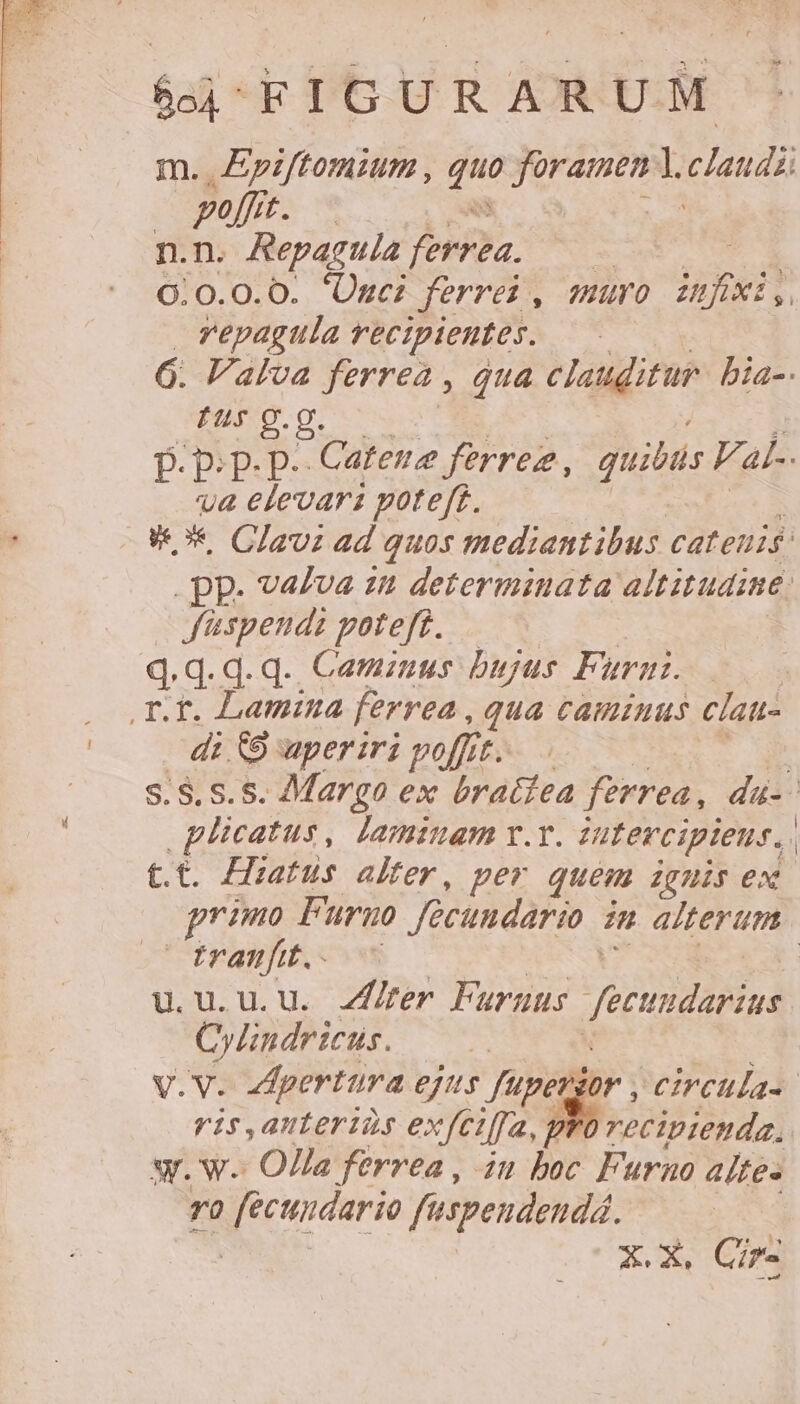 804 FIGURARUM
m. Epiſtomium, quo foramen l. claudi
poſſit.
n.n. Repagula ferrea.
o.o.o.o. Unci ferrei, muro infixi,
repagula recipientes.
6. Valva ferrea, qua clauditur hia-
tus g.g.
p.p.p.p. Catenæ ferreæ, quibus Val-
va elevari poteſt.
*.*. Clavi ad quos mediantibus catenis
pp. valva in determinata altitudine
ſuspendi poteſt.
q.q.q.q. Caminus hujus Furni.
r.r. Lamina ferrea, qua caminus clau-
di & aperiri poſſit.
s.s.s.s. Margo ex bractea ferrea, du-
plicatus, laminam r.r. intercipiens.
t.t. Hiatus alter, per quem ignis ex
primo Furno ſecundario in alterum
tranſit.
u.u.u.u. Alter Furnus ſecundarius
Cylindricus.
v.v. Apertura ejus ſuperior, circula-
ris, anteriùs exſciſſa, pro recipienda.
w.w. Olla ferrea, in hoc Furno alte-
ro ſecundario ſuspendendá.
x.x. Cir-